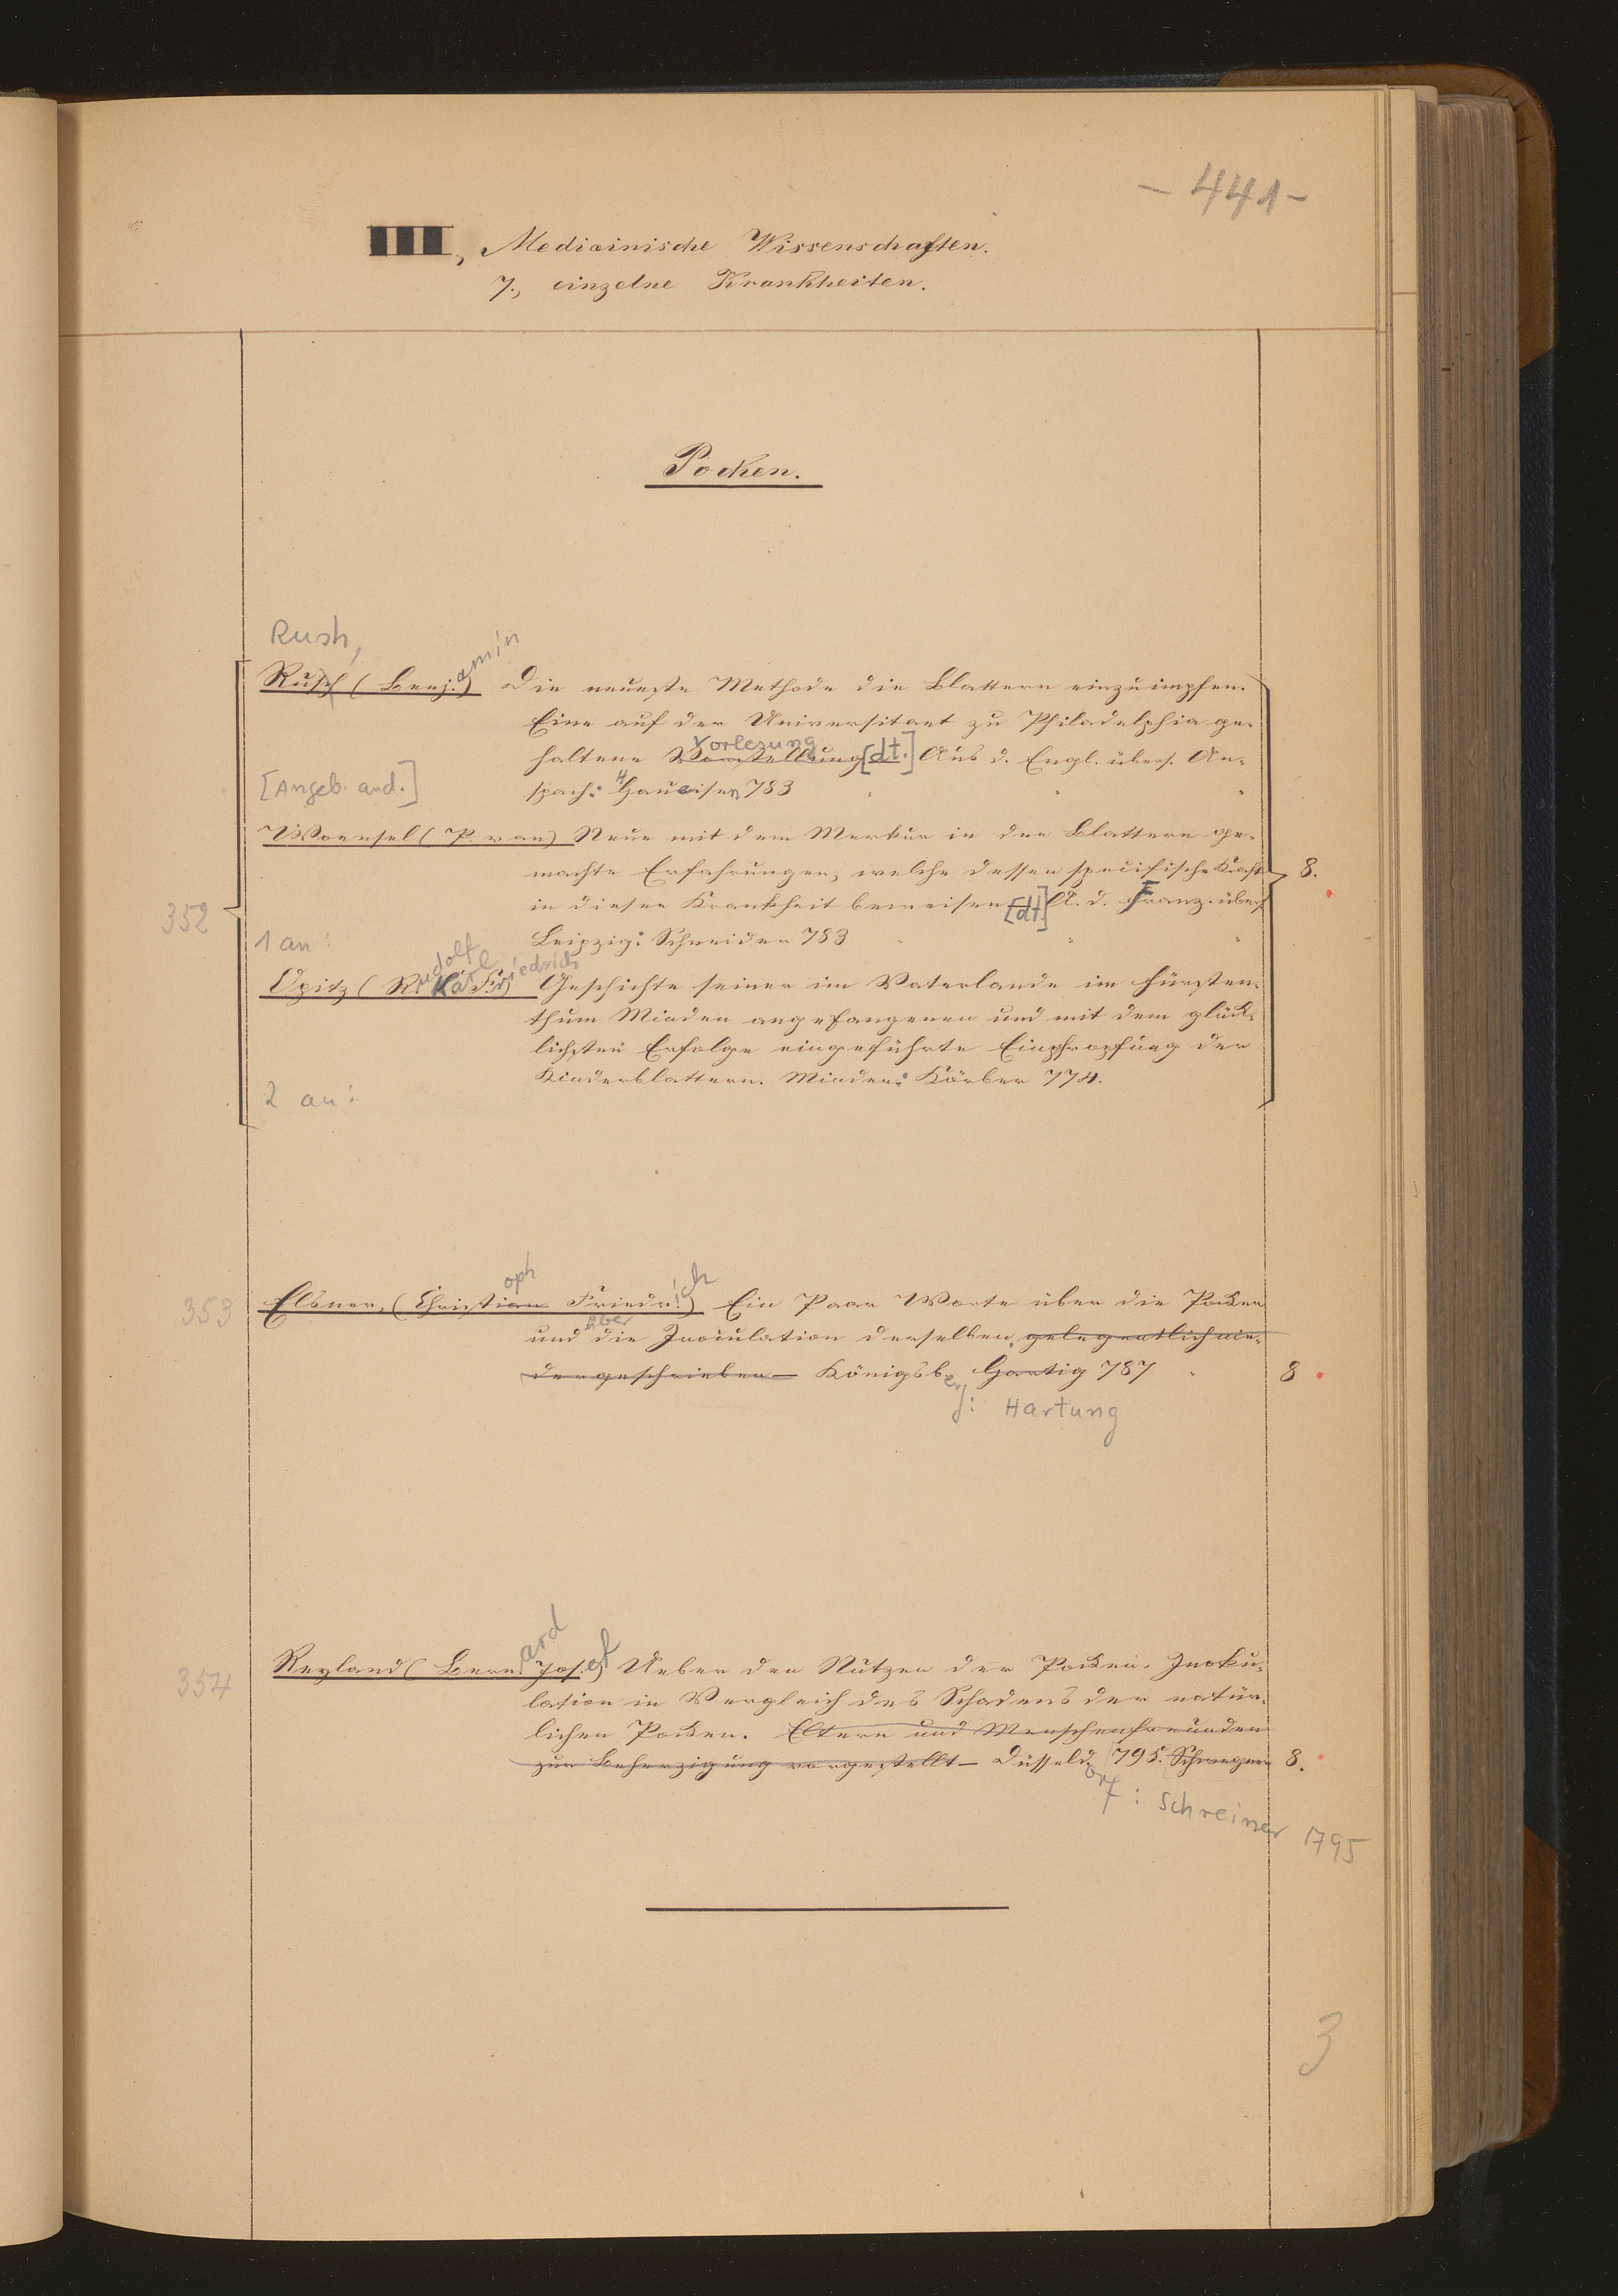 - 441 -
III, Medicinische Wissenschaften.
7., einzelne Krankheiten.
Pocken.
Rush,
Rusch (Benj.amin) Die neueste Methode die Blattern einzuimpfen.
Eine auf der Universitaet zu Philadelphia ge-
haltene Vorstellung Vorlesung [dt.] Aus d. Engl. übers. An-
[Angeb. and.] spach: Haueisen 783
Woensel (P. van) Neue mit dem Merkur in den Blattern ge-
machte Erfahrungen, welche dessen specifische Kraft 8.
352 in dieser Krankheit beweisen [dt.] A. d. Franz. übers.
1 an: Leipzig: Schneider 783
Opitz (Rudolf Karl Friedrich) Geschichte seiner im Vaterlande im Fürsten-
thum Minden angefangenen und mit dem glück-
lichsten Erfolge eingeführte Einpfropfung der
Kinderblattern. Minden: Körber 774.
2 an:
353 Elsner, (Christian oph Friedr.ich) Ein Paar Worte über die Pocken
und über die Inoculation derselben, gelegentlich nie-
dergeschrieben – Königsberg: Hartig 787 8
Hartung
354 Reyland (Bern.ard Jos.ef) Ueber den Nutzen der Pocken-Inoku-
lation in Vergleich des Schadens der natür-
lichen Pocken. Eltern und Menschenfreunden
zur Beherzigung vorgestellt – Düsseld. 795. 8.
orf: Schreiner 1795
3